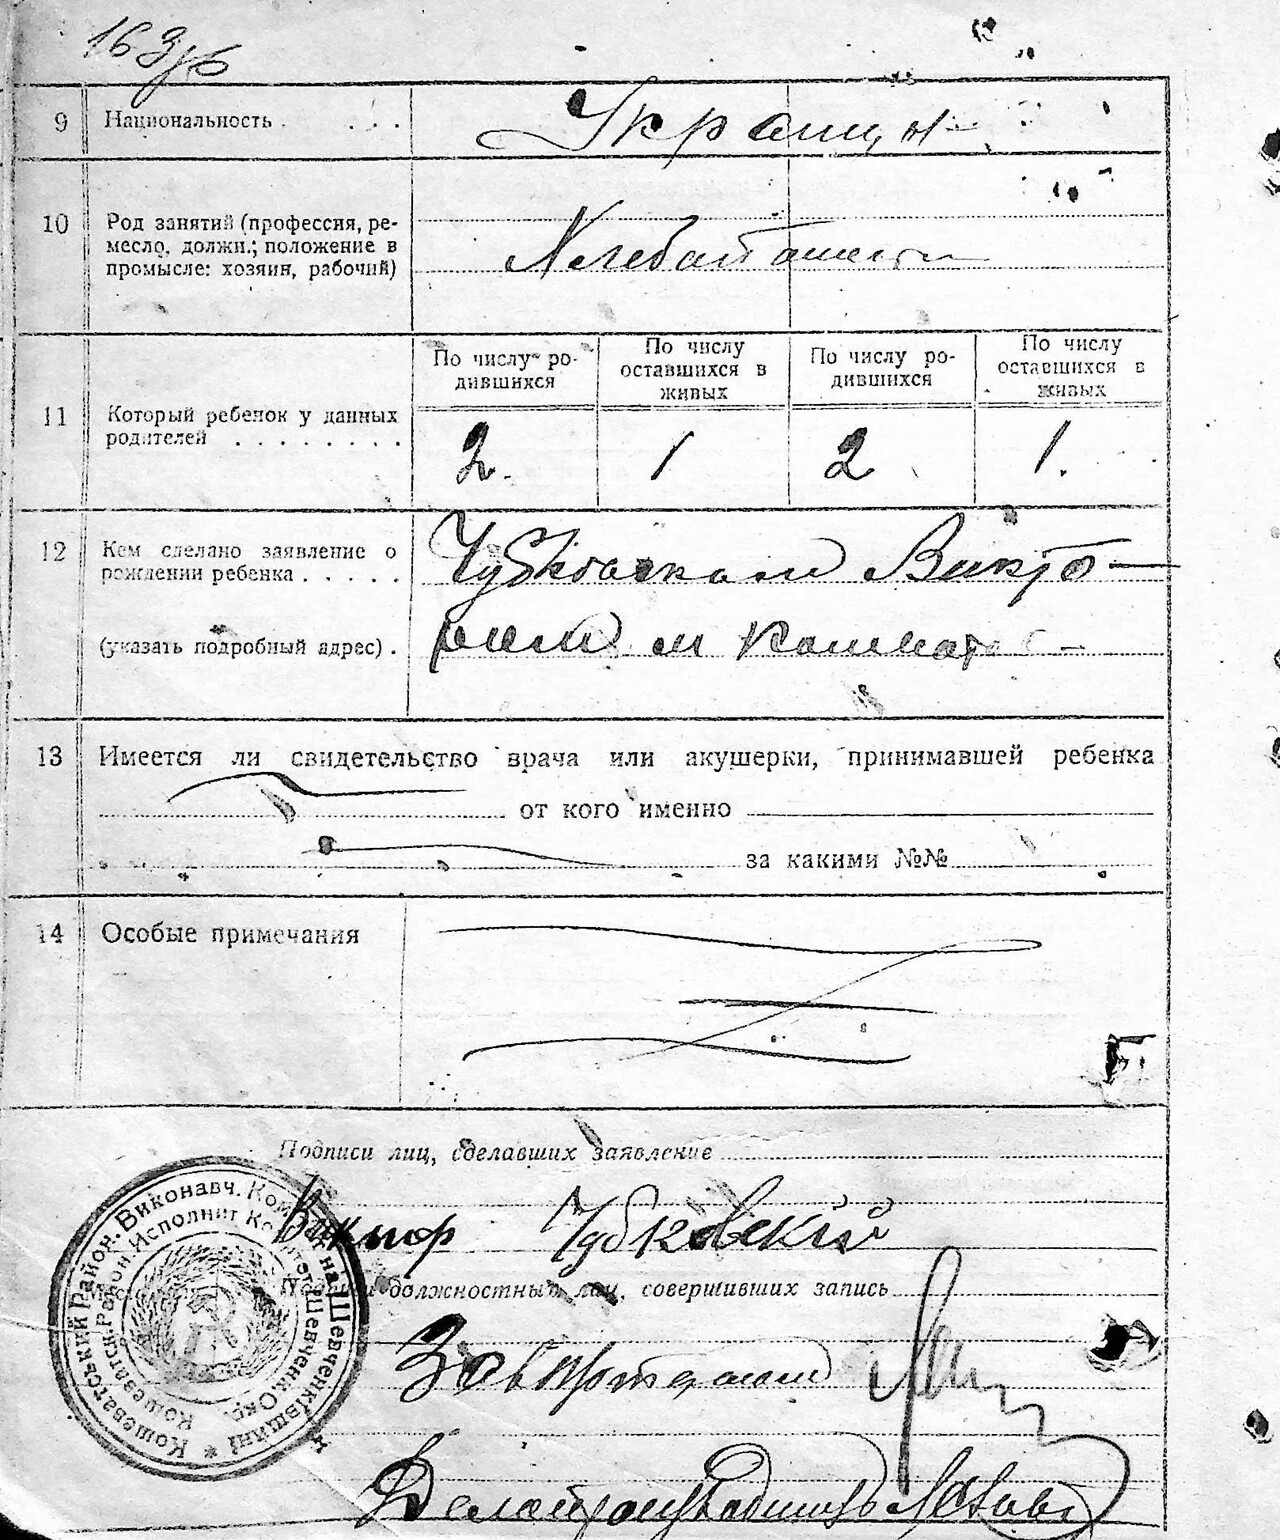 9 Национальность . . . .
Украинц
10 Род занятий (профессия, ре-
месло, должн.; положение в
промысле: хозяин, рабочий)
11 Который ребенок у данных
родителей . . . . . . . .
По числу ро-
дившихся
По числу
оставшихся в
живых
По числу ро-
дившихся
По числу
оставшихся в
живых
2. 1 2 1.
12 Кем сделано заявление о
рождении ребенка . . . . .
(указать подробный адрес) .
Чубковским Викто-
ром м
13 Имеется ли свидетельство врача или акушерки, принимавшей ребенка
от кого именно
за какими №№
14 Особые примечания
Подписи лиц, сделавших заявление
Виктор Чубковскій
Подписи должностных лиц, совершивших запись
Кошеватський Район. Виконавч. Комітет на Шевченківщині
Кошеватск. Район. Исполнит Комитет Шевченк. Окр.